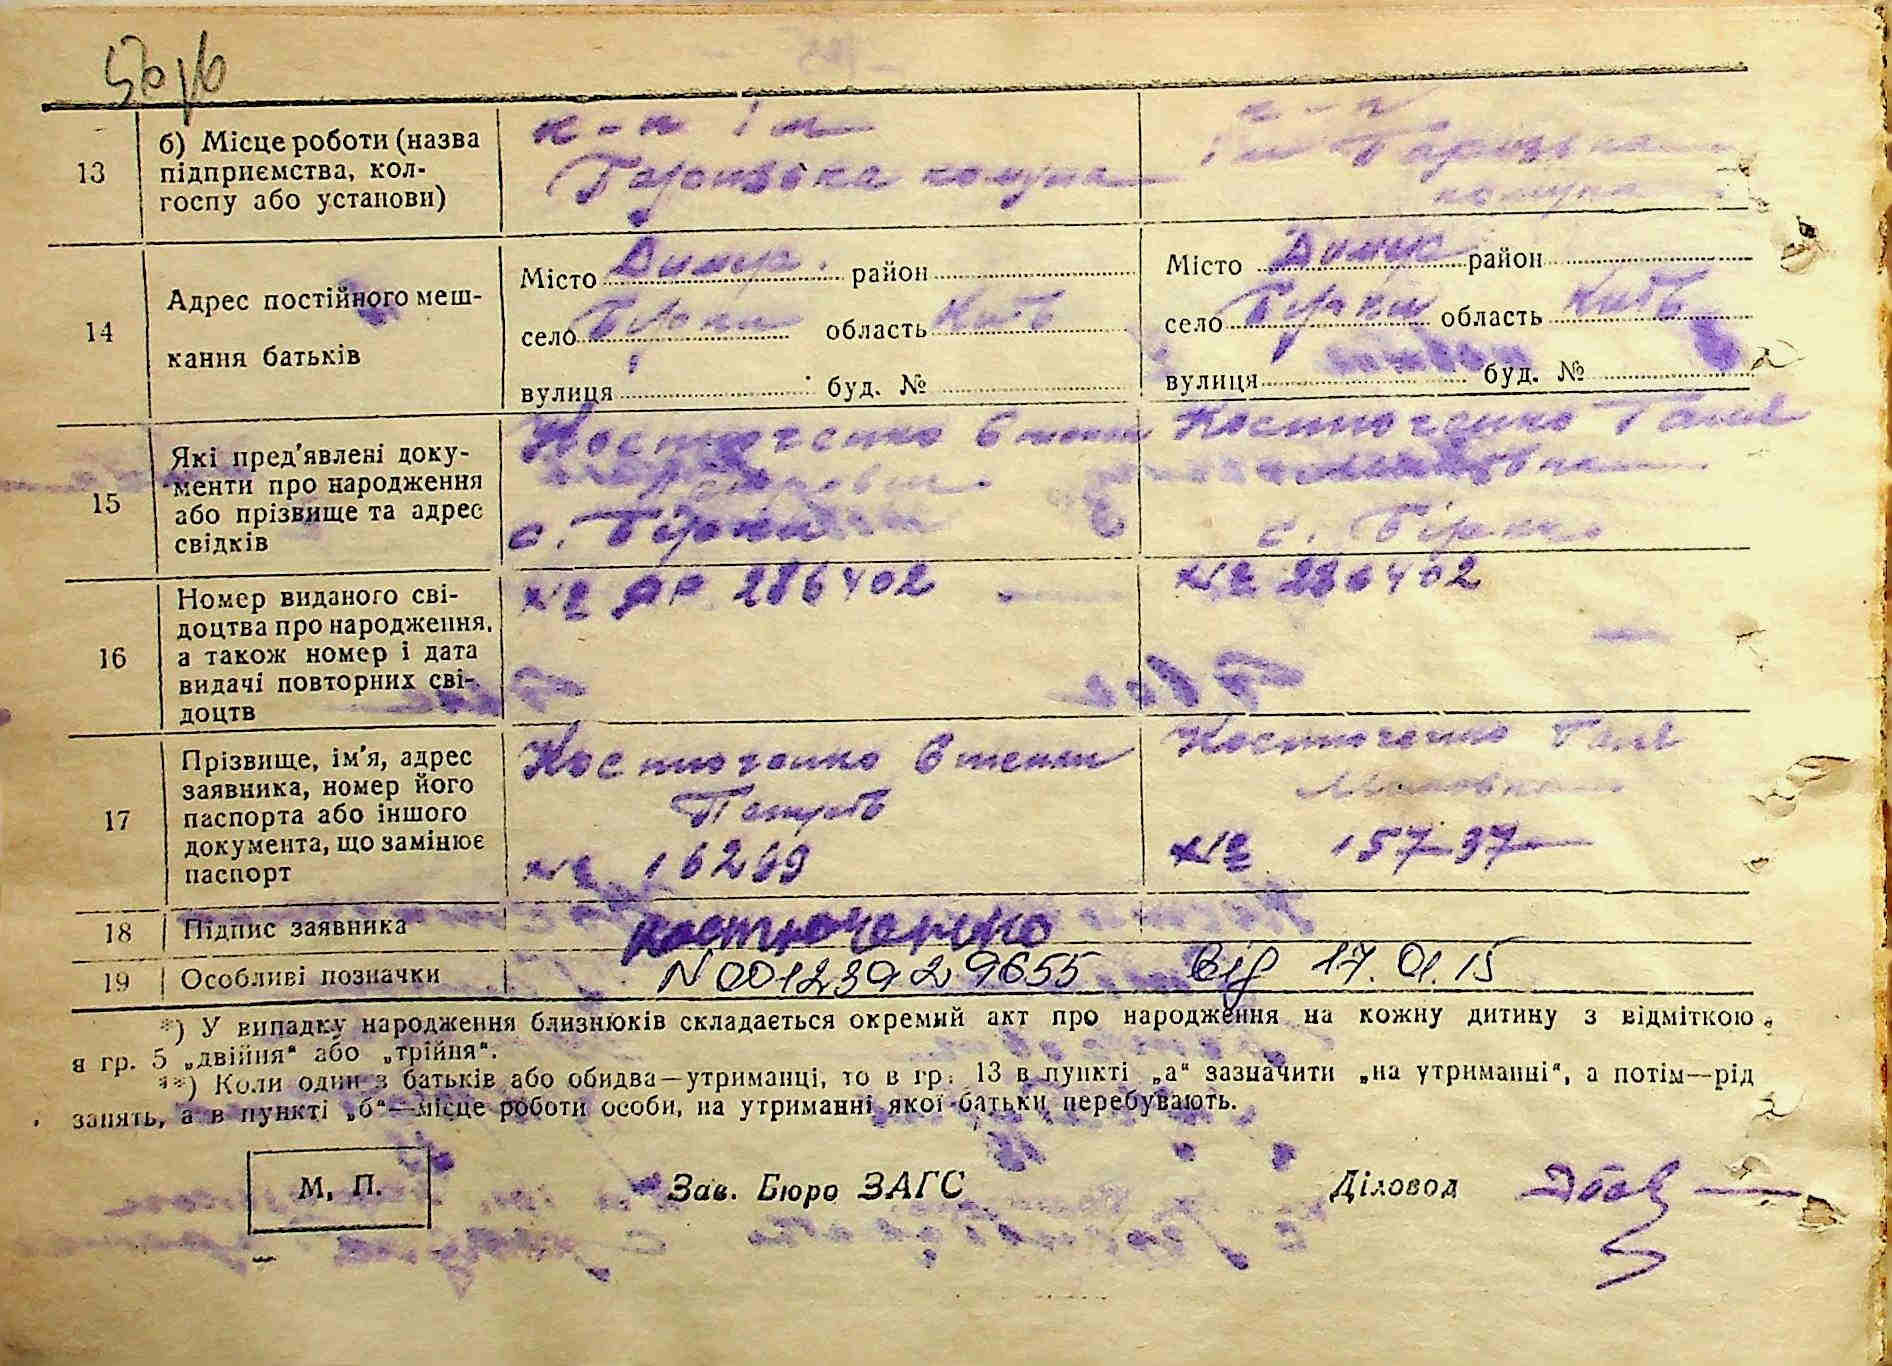 13
б) Місце роботи (назва
підприємства, кол-
госпу або установи)
к-п ім
комуна
ім
комуна
14
Адрес постійного меш-
кання батьків
Місто Димер район
село Бірки область Київ
вулиця буд. №
Місто Димер район
село Бірки область Київ
вулиця буд. №
15
Які пред'явлені доку-
менти про народження
або прізвище та адрес
свідків
Костюченко
с. Бірки
Костюченко Галя
с. Бірки
16
Номер виданого сві-
доцтва про народження,
а також номер і дата
видачі повторних сві-
доцтв
№ 286402
№ 286402
17
Прізвище, ім'я, адрес
заявника, номер його
паспорта або іншого
документа, що замінює
паспорт
Костюченко
№ 16269
Костюченко Галя
№ 157-37
18
Підпис заявника
Костюченко
19
Особливі позначки
N 00123929655 від 17.01.15
*) У випадку народження близнюків складається окремий акт про народження на кожну дитину з відміткою
в гр. 5 „двійня“ або „трійня“.
**) Коли один з батьків або обидва—утриманці, то в гр. 13 в пункті „а“ зазначити „на утриманні“, а потім—рід
занять, а в пункті „б“—місце роботи особи, на утриманні якої батьки перебувають.
М. П.
Зав. Бюро ЗАГС
Діловод